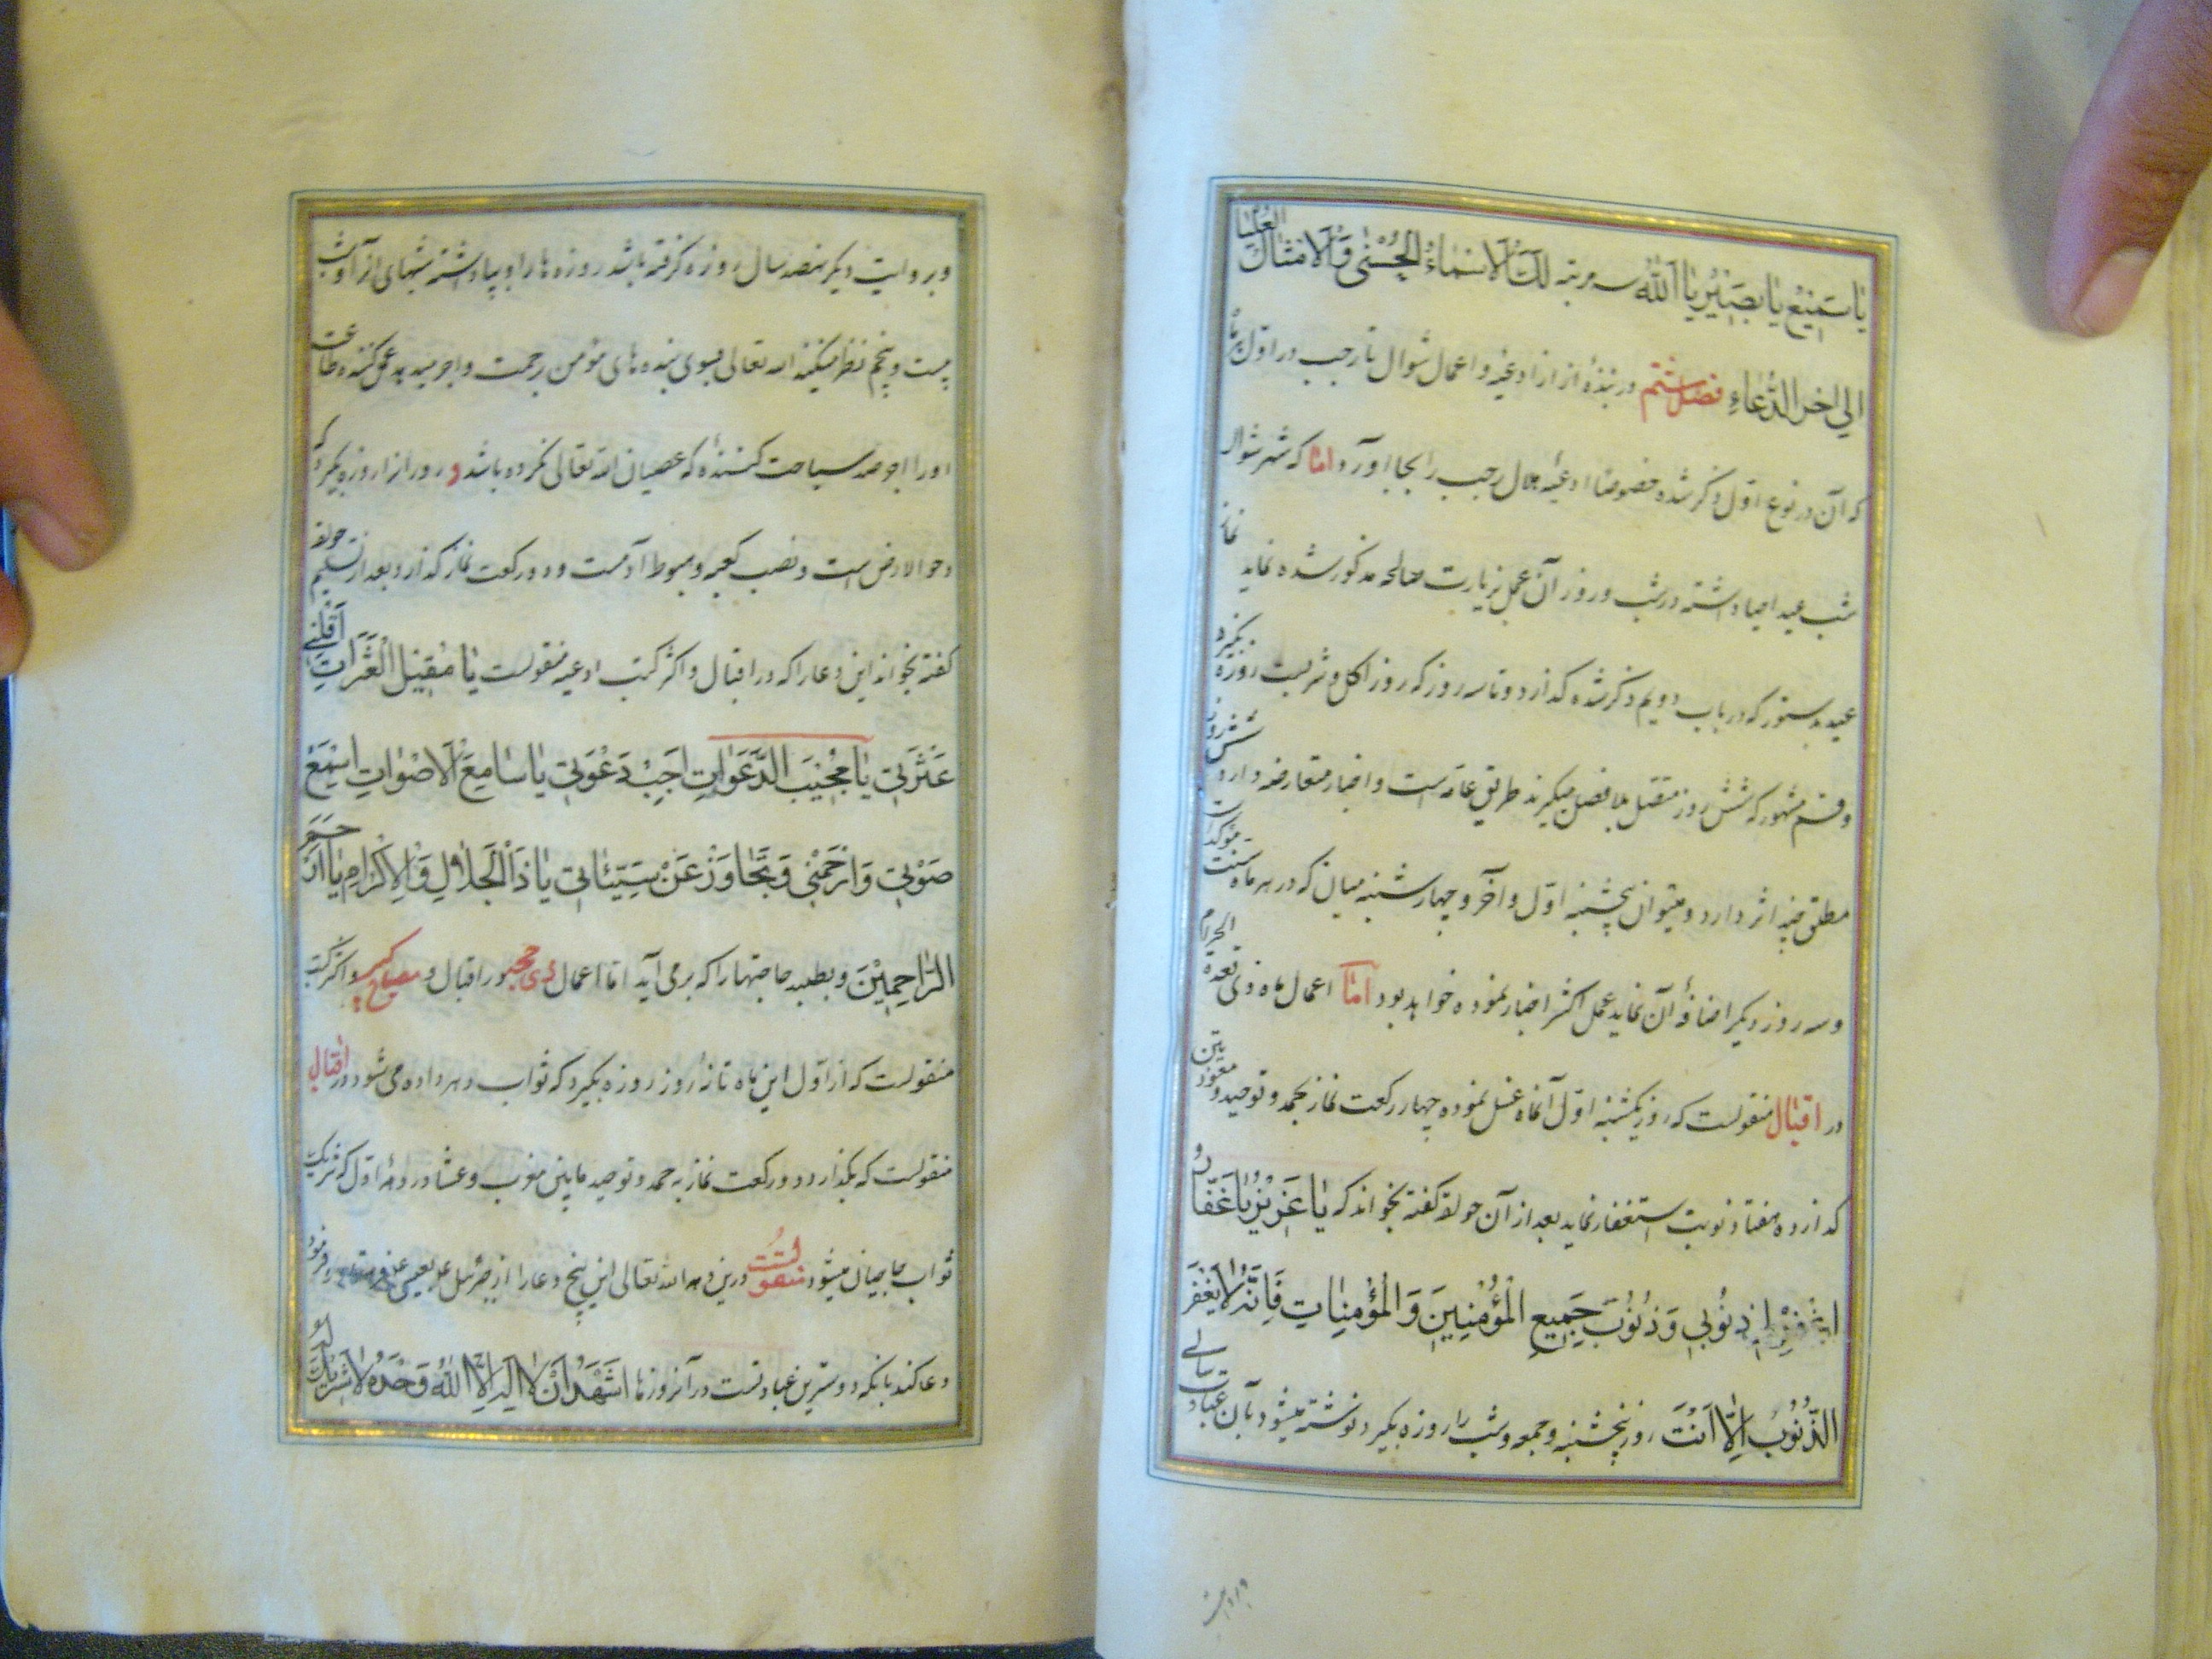 یا سَمیعُ یا بَصیرُ یا اَللّٰهُ سه مرتبه لَكَ الْاَسْماءُ الْحُسْنیٰ وَالْاَمْثالُ الْعُلْیا
اِلی اخِرِ الدُّعاءِ فصل ششم در نبذهٔ از ادعیه و اعمال شوال تا رجب در اول
که آن در نوع اول ذکر شده خصوصا ادعیه هلال رجب را بجا آورد اما که شهر شوال
شب عید احیا داشته در شب و روز آن عمل بزیارت صالحه مذکور شده نماید نماز
عید بدستور که در باب دویم ذکر شده گذارد و تا سه روز که روز اکل و شربست روزه نگیرد
و قسم مشهور که شش روز متصل بلا فصل میگیرند طریق عامه است و اخبار متعارضه دارد شش روز
مطلق چند اثر دارد و میتوان پنجشنبه اول و آخر و چهارشنبه میان که در هر ماه سنت مؤکدست
و سه روز دیگر اضافهٔ آن نماید عمل اکثر اخبار نموده خواهد بود اما اعمال ماه ذی قعدة الحرام
در اقبال منقولست که روز یکشنبه اول آنماه غسل نموده چهار رکعت نماز بحمد و توحید و معوذتین
گذارده هفتاد نوبت استغفار نماید بعد از آن حولاة گفته بخواند که یا عَزیزُ یا غَفّارُ
اِغْفِرْ ذُنُوبی وَ ذُنُوبَ جَمیعِ الْمُؤْمِنینَ وَ الْمُؤْمِناتِ فَاِنَّهُ لا یَغْفِرُ
الذُّنُوبَ اِلّا اَنْتَ روز پنجشنبه و جمعه و شنبه را روزه بگیرد نوشته میشود بآن عبادت
و بروایت دیگر نهصد سال روزه گرفته باشد روزه ها را و بپا داشته شبهای از آنرا و شب
بیست و پنجم نظر میکند الله تعالی بسوی بنده های مؤمن برحمت و اجر میدهد عمل کننده طاعت
او را اجر صد سیاحت کننده که عصیان الله تعالی نکرده باشد و روز آنرا روزه بگیرد که
دحو الارض است و نصب کعبه و هبوط آدمست و دو رکعت نماز گذارد بعد از تسلیم حولاة
گفته بخواند این دعا را که در اقبال و اکثر کتب ادعیه منقولست یا مُقیلَ الْعَثَراتِ اَقِلْنی
عَثْرَتی یا مُجیبَ الدَّعَواتِ اَجِبْ دَعْوَتی یا سامِعَ الْاَصْواتِ اِسْمَعْ
صَوْتی وَ ارْحَمْنی وَ تَجاوَزْ عَنْ سَیِّئاتی یا ذَا الْجَلالِ وَ الْاِکْرامِ یا اَرْحَمَ
الرّاحِمینَ و بطلبد حاجتها را که برمی آید اما اعمال ذی حجه در اقبال و مصباح کبیر و اکثر کتب
منقولست که از اول این ماه تا نه روز روزه بگیرد که ثواب دهر داده می شود در اقبال
منقولست که بگذارد دو رکعت نماز به حمد و توحید ما بین مغرب و عشا در دههٔ اول که شریک
ثواب حاجیان میشود منقولست درین دهه الله تعالی این پنج دعا را از جبرئیل علیه بعیسی فرستاد و فرمود
دعا کند بانکه دوسترین عبادتست در آنروزها اَشْهَدُ اَنْ لا اِلٰهَ اِلَّا اللهُ وَحْدَهُ لا شَریكَ لَهُ